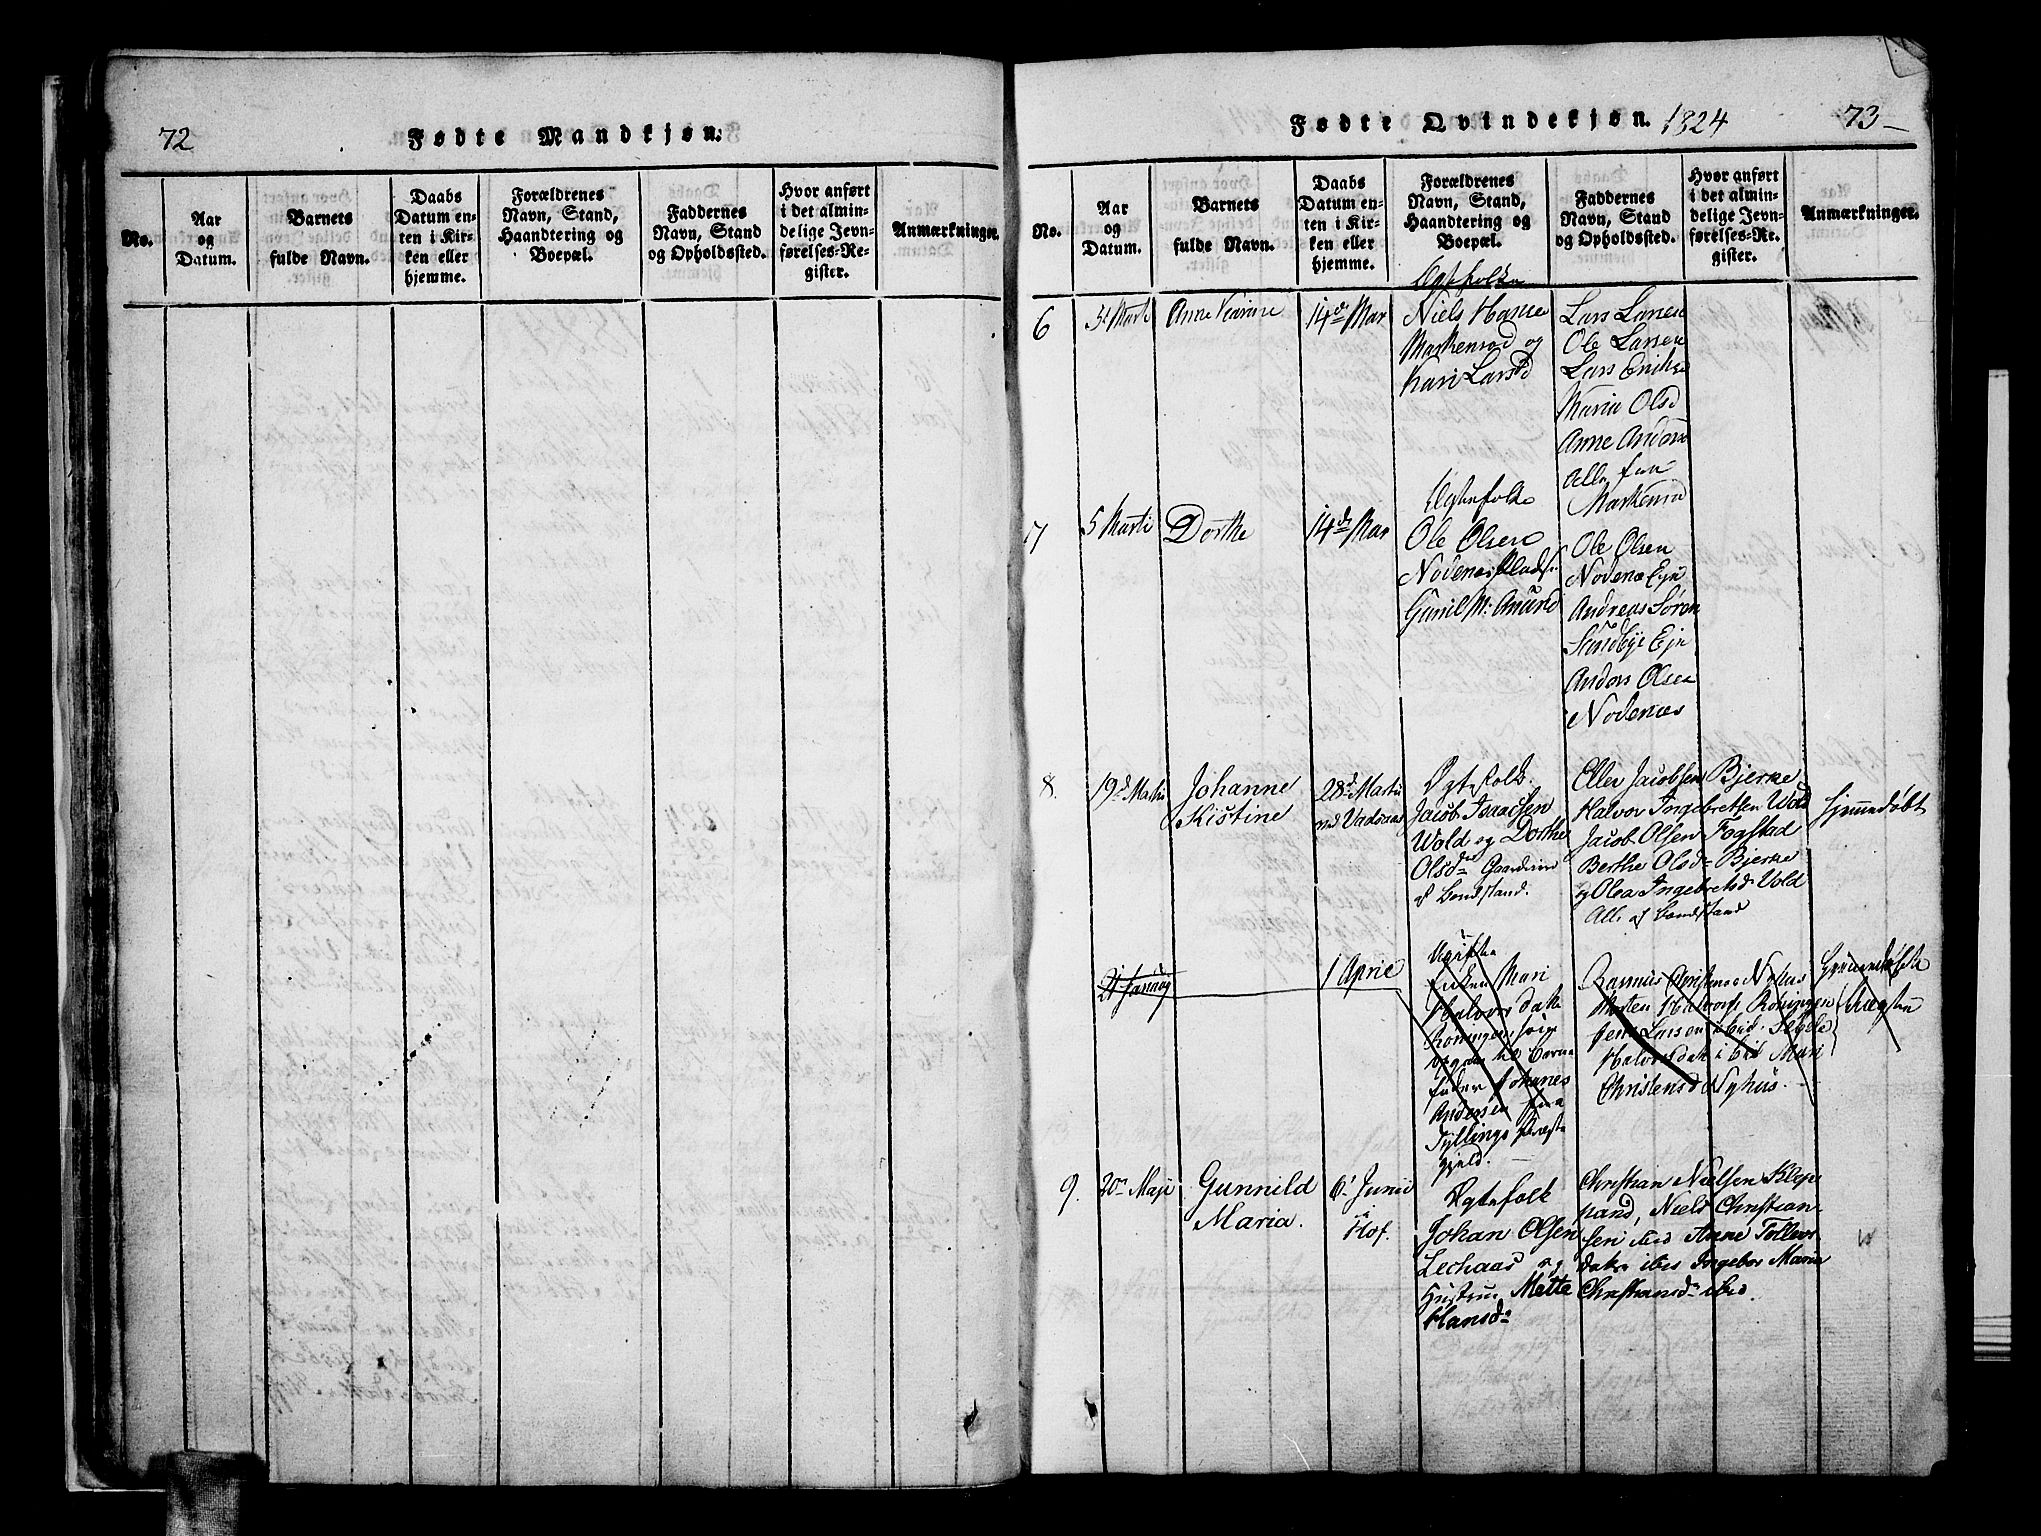 72
Fødte Mandkjøn.
No.
Aar
og
Datum.
Barnets
fulde Navn.
Daabs
Datum en-
ten i Kir-
ken eller
hjemme.
Forældrenes
Navn, Stand,
Haandtering og
Boepæl.
Faddernes
Navn, Stand
og Opholdssted.
Hvor anført
i det almin-
delige Jevn-
førelses-Re-
gister.
Anmærkninger.
Fødte Qvindekjøn. 1824
73
No.
Aar
og
Datum.
Barnets
fulde Navn.
Daabs
Datum en-
ten i Kir-
ken eller
hjemme.
Forældrenes
Navn, Stand,
Haandtering og
Boepæl.
Faddernes
Navn, Stand
og Opholdssted.
Hvor anført
i det almin-
delige Jevn-
førelses-Re-
gister.
Anmærkninger.
6
Anne Karine
14de Mar
Ægtefolke
Niels Hanse
Markerød og
Kari Larsd
Lars Larsen
Ole Larsen
Lars Erikse
Maria Olsd
Anne Anders
Alle fra
Markerød
7
5 Marti
Dorthe
14de Mar
Ægtefolke
Ole Olsen
Nodenes Pladsf.
Gunil M: Amund
Ole Olsen
Nodenæ Ejn
Andreas Søren
Sundbye Ejn
Anders Olsen
Nodenæs
8.
19d Martii
Johanne
Kistine
28d Martii
ved Vadsaas
Ægtefolk
Jacob Isaachsen
Wold og Dorthe
Olsdr Gaardmænd
af Bondestand.
Eller Jacobsen Bjerke
Halvor Ingebretsen Wold
Jacob Olsen Fogstad
Berthe Olsd- Bjerke
og Olea Ingebretsd Vold
Alle af Bondestand
hjemmedøbt
21 Januar
1 April
Ugifte
Enken Mari
Halvorsdatr
Roningen som
opgav til Barne
fader Johanes
Andersen fra
Jyllings Præste
gjeld.
Rasmus Christensen Nyhus
Morten Halvorse Roningen
Jens Larsen ibid
Halvorsdatr ibid Mari
Christensd Nyhus.
hjemmedøbte
9.
20n Maji
Gunnild
Maria.
6t Junii
i
Hof.
Ægtefolk
Johan Olsen
Lechaas og
Hustrue Mette
Hansdr
Christian Nielsen Klep
pand, Niels Christian-
sen ibid Anne Tollevs
datr ibid Ingebor Maria
Christiansdr ibid.